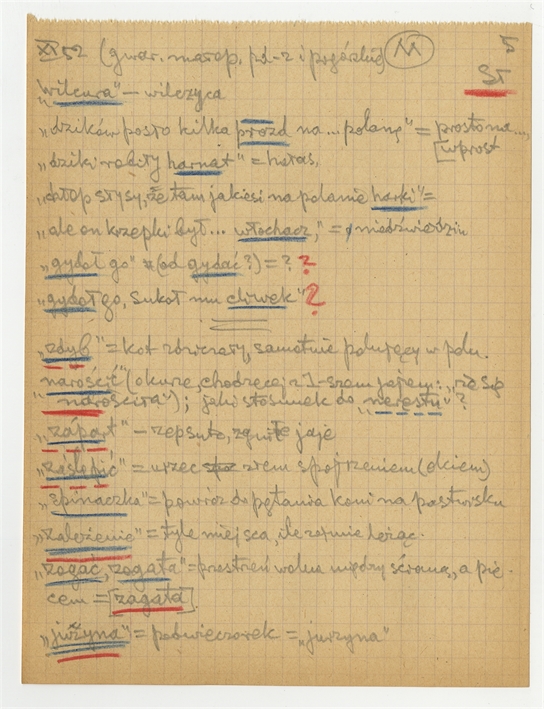 XI 52 (gwar. małop. pd-z i pogórskie) M 5
St
"wilcura" – wilczyca
"dzików posło kilka prozd na... polanę" = prosto na...,
[wprost
"dziki robiły harnat" = hałas,
"chłop słysy, że tam jakiesi na polanie harki" =
"ale on krzepki był... włochacz," = niedźwiedziu
"gydoł go" (od gydać?) = ? ?
"gydoł go, sukoł mu cliwek" ?
"zdyb" = kot zdziczały, samotnie polujący w polu.
"narościć" (o kurze, chodzącej z 1-szem jajem: "nie się
narościła"); jaki stosunek do "nerestu"?
"zápart" – zepsute, zgniłe jaje
"zaślepić" = urzec złem spojrzeniem (okiem)
"spinaczka" = powróz do pętania koni na pastwisku
"założenie" = tyle miejsca, ile zajmie leżąc.
"zagać, zagata" = przestrzeń wolna między ścianą, a pie-
cem = [zagata]
"jużyna" = podwieczorek = "jurzyna"